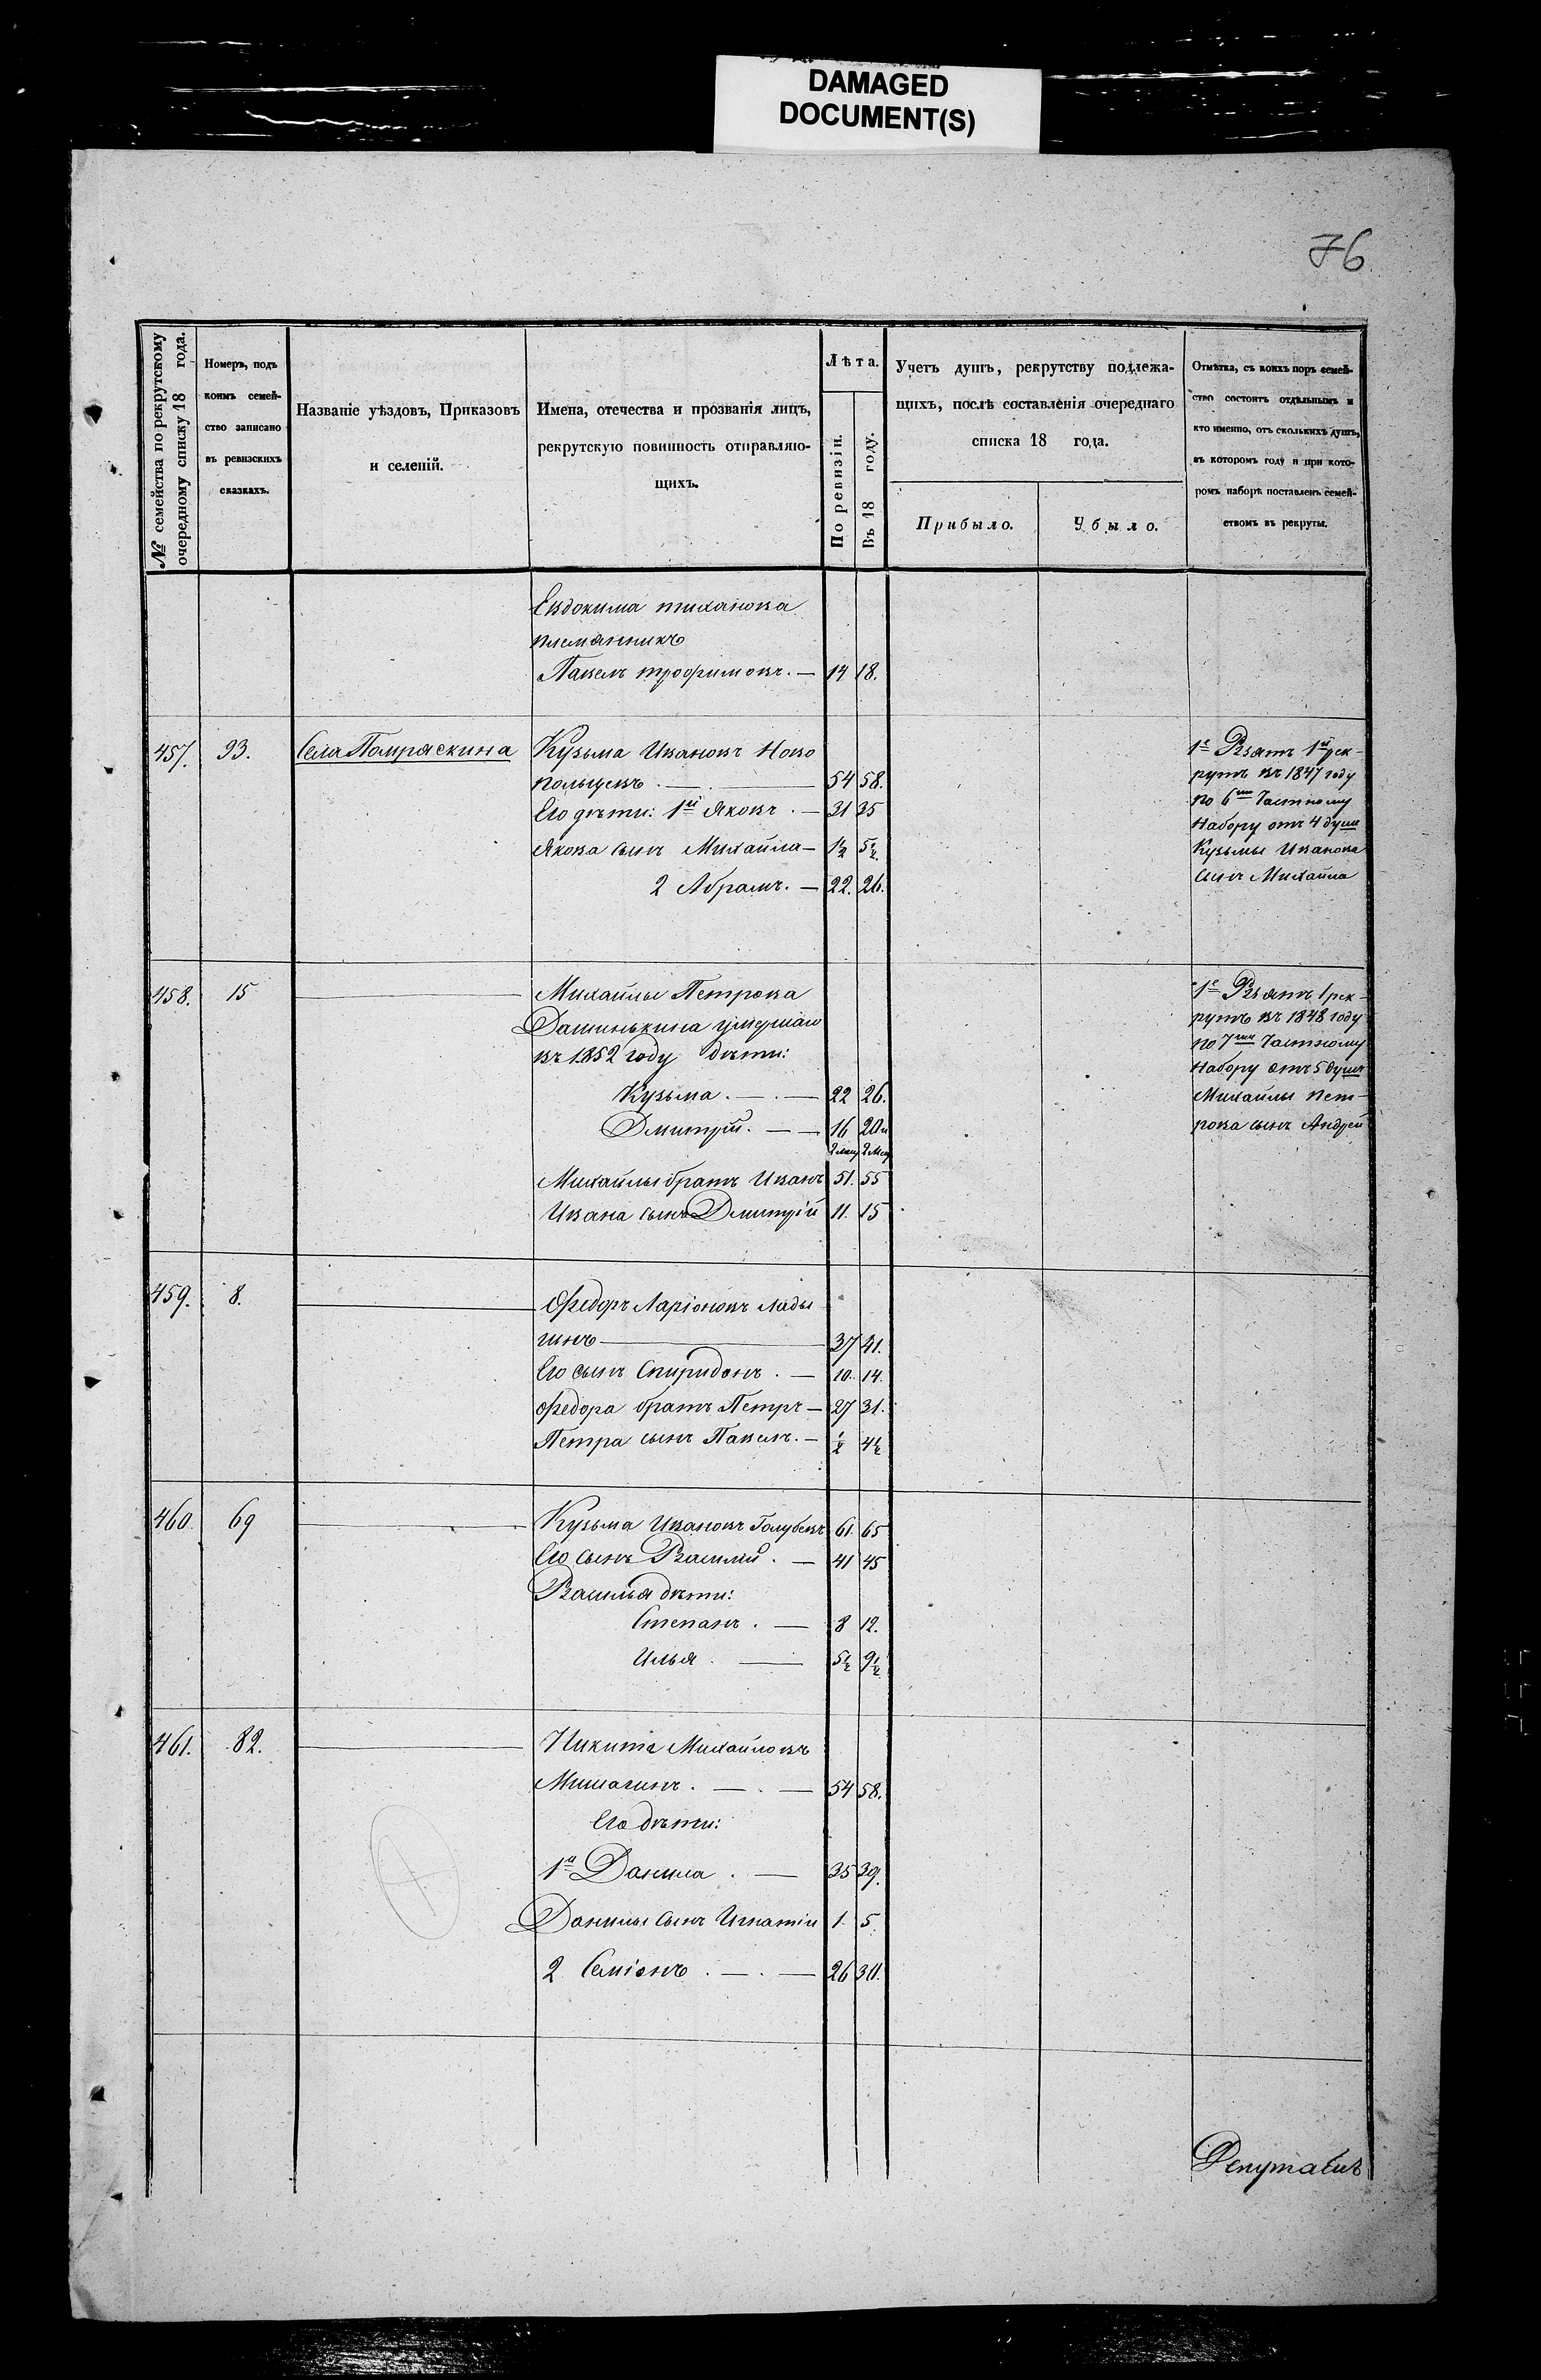 DAMAGED
DOCUMENT(S)
76
№ семейства по рекрутскому
очередному списку 18 года.
Номеръ, подъ
коимъ семей-
ство записано
въ ревизскихъ
сказкахъ.
Названіе уѣздовъ, Приказовъ
и селеній.
Имена, отечества и прозванія лицъ,
рекрутскую повинность отправляю-
щихъ.
Лѣта.
По ревизіи.
Въ 18 году.
Учетъ душъ, рекрутству подлежа-
щихъ, послѣ составленія очереднаго
списка 18 года.
Прибыло.
Убыло.
Отмѣтка, съ коихъ поръ семей-
ство состоитъ отдѣльнымъ и
кто именно, отъ сколькихъ душъ,
въ которомъ году и при кото-
ромъ наборѣ поставленъ семей-
ствомъ въ рекруты.
Евдокима тиханова
племянникъ
Павелъ трофимовъ. — 14 18.
457. 93. Села Помряскина Кузьма Ивановъ Ново
польцевъ . — . — 54 58.
Его дѣти: 1й Яковъ . — 31 35
Якова сынъ Михайла — 1½ 5½
2 Абрамъ. — 22. 26.
1е Взятъ 1й рек-
рутъ въ 1847 году
по 6му Частному
Набору отъ 4 душъ
Кузьмы Иванова
сынъ Михайла
458. 15 Михайлы Петрова
Дашинькина умершаго
въ 1852 году дѣти:
Кузьма . — . — 22 26.
Дмитрій. — — 16 20 и
2 мец 2 мец
Михайлы братъ Иванъ 51. 55
Ивана сынъ Дмитрій 11. 15
1е Взятъ 1 рек-
рутъ въ 1848 году
по 7му Частному
Набору отъ 5 душъ
Михайлы Пет-
рова сынъ Андрей
459. 8. Федоръ Ларіоновъ Лады
гинъ — 37 41.
Его сынъ Спиридонъ . — 10. 14.
Федора братъ Петръ — 27 31.
Петра сынъ Павелъ. — ½ 4½
460. 69 Кузьма Ивановъ Голубевъ 61. 65
Его сынъ Василій . — 41 45
Василья дѣти:
Степанъ . — 8 12.
Илья . — 5½ 9½
461. 82. Никита Михайловъ
Мишагинъ . — . — 54 58.
Его дѣти:
1й Данила . — 35 39.
Данилы сынъ Игнатій 1. 5.
2 Семіонъ . — . — 26 30.
Депутатъ